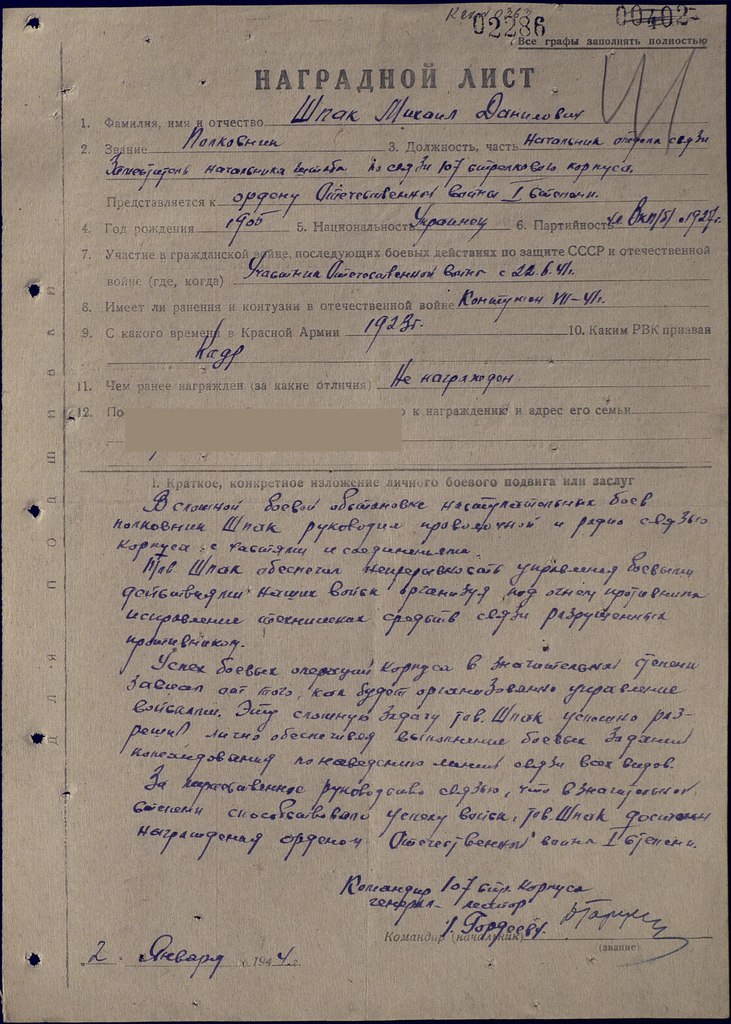 02286
00402
Все графы заполнять полностью
НАГРАДНОЙ ЛИСТ
1. Фамилия, имя и отчество Шпак Михаил Данилович
2. Звание Полковник 3. Должность, часть Начальник отдела связи
Заместитель начальника штаба по связи 107 стрелкового корпуса.
Представляется к ордену Отечественной войны I степени.
4. Год рождения 1905 5. Национальность Украинец 6. Партийность ВКП/б/ с 1927г.
7. Участие в гражданской войне, последующих боевых действиях по защите СССР и отечественной
войне (где, когда) Участник Отечественной войны с 22.6.41г.
8. Имеет ли ранения и контузии в отечественной войне Контужен VII-41г.
9. С какого времени в Красной Армии 1923г. 10. Каким РВК призван
Кадр
11. Чем ранее награжден (за какие отличия) Не награжден
12. По к награждению и адрес его семьи
I. Краткое, конкретное изложение личного боевого подвига или заслуг
В сложной боевой обстановке наступательных боев
полковник Шпак руководил проволочной и радио связью
корпуса с частями и соединениями.
Тов. Шпак обеспечил непрерывность управления боевыми
действиями наших войск организуя под огнем противника
исправление технических средств связи разрушенных
противником.
Успех боевых операций корпуса в значительной степени
зависел от того, как будет организованно управление
войсками. Эту сложную задачу тов. Шпак успешно раз-
решил лично обеспечивая выполнение боевых заданий
командования по наведению линий связи всех видов.
За руководство связью, что в значительной
степени способствовало успеху войск, тов. Шпак достоин
награждения орденом Отечественной войны I степени.
Командир 107 стр. корпуса
генерал-майор
/. Гордеев/.
Командир (начальник)
(звание)
2. Января 1944 г.
ДЛЯ ПОДШИВКИ